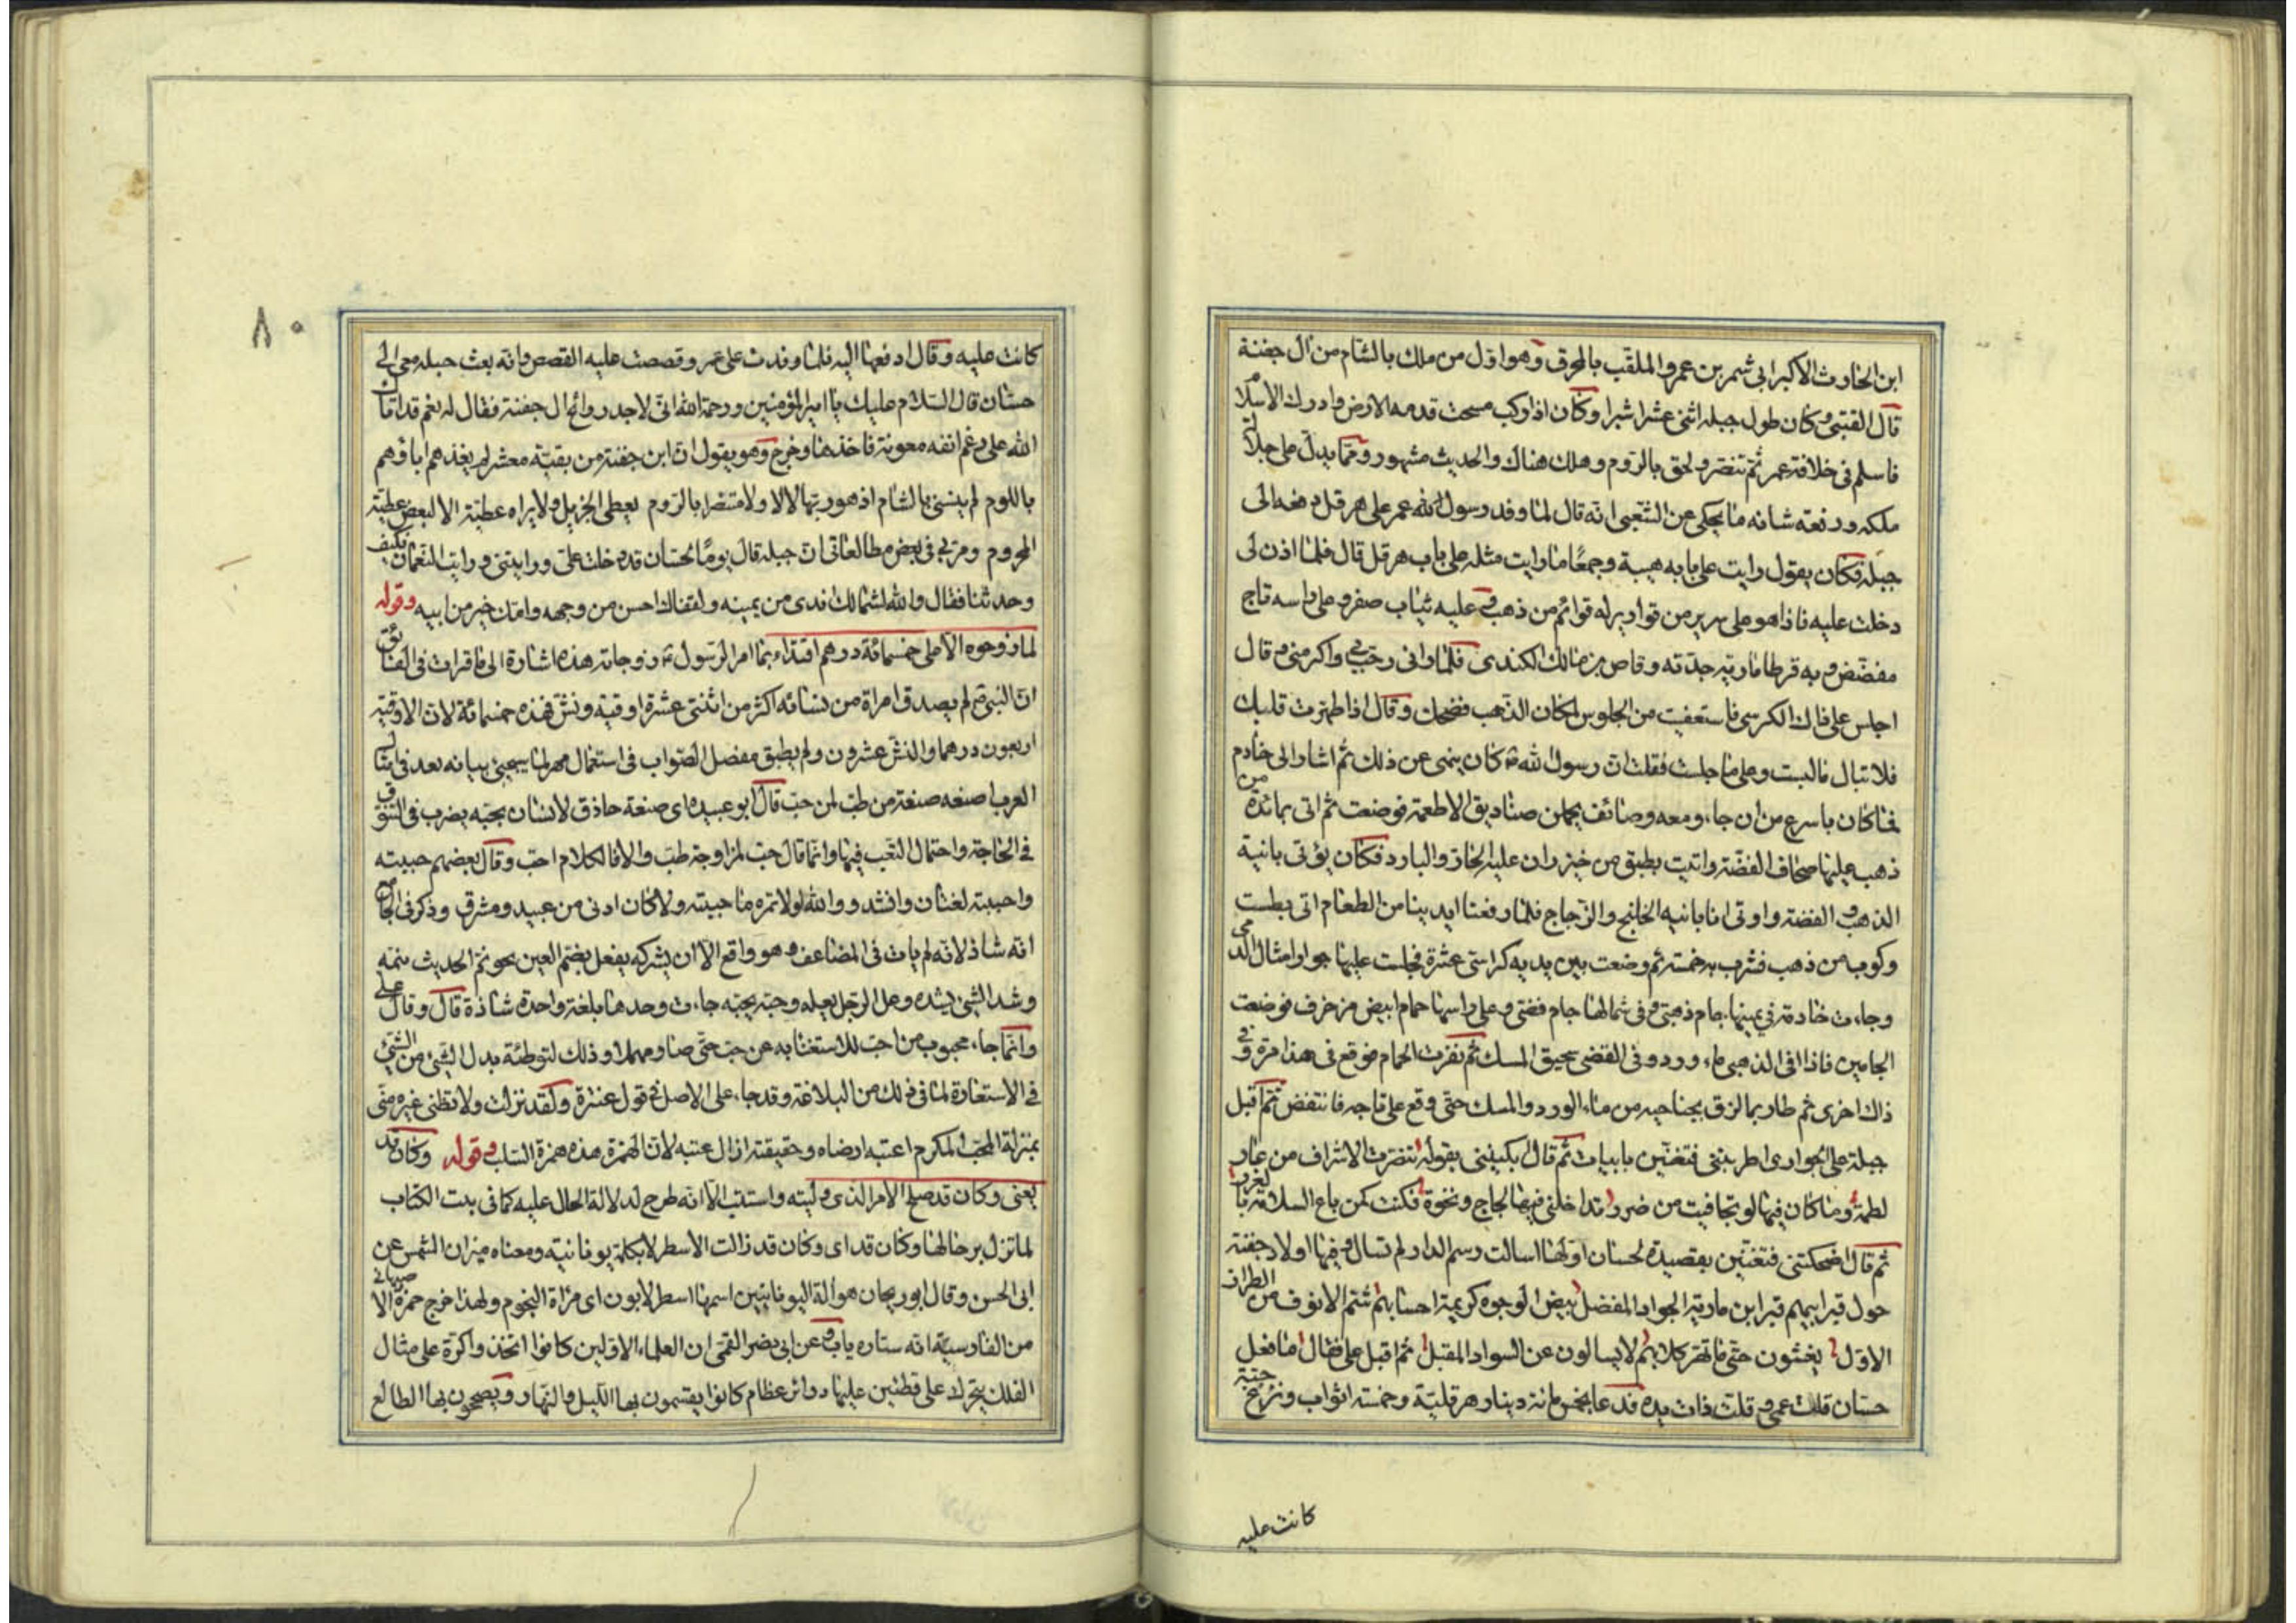 ابن الحارث الاكبر ابى شمر بن عمرو الملقب بالمحرق وهو اول من ملك بالشام من ال جفنة
قال القتبى وكان طول جبله اثنى عشر اشبرا وكان اذا ركب مسحت قدمه الارض وادرك الاسلام
فاسلم فى خلافة عمر ثم تنصر ولحق بالروم وهلك هناك والحديث مشهور ومما يدل على جلالة
ملكه ورفعة شانه ما يحكى عن الشعبى انه قال لما وفد رسول الله عمر على هرقل دفعه الى
جبلة فكان يقول رايت على بابه هيبة وجمعا ما رايت مثله على باب هرقل قال فلما اذن لى
دخلت عليه فاذا هو على سرير من قوارير له قوائم من ذهب وعليه ثياب صفر وعلى راسه تاج
مفضض وبه قرطا مارية جدته وقاص بن مالك الكندى فلما رانى رحب بى واكرمنى وقال
اجلس على ذاك الكرسى فاستعفيت من الجلوس لمكان الذهب فضحك وقال اذا طهرت قلبك
فلا تبال ما لبست وعلى ما جلست فقلت ان رسول الله ص كان ينهى عن ذلك ثم اشار الى خادم
فما كان باسرع من ان جاء ومعه وصائف يحملن صناديق الاطعمة فوضعت ثم اتى بمائدة من
ذهب عليها صحاف الفضة واتيت بطبق من خيزران عليه الحار والبارد فكان يؤتى بانية
الذهب والفضة واوتى انا بانيه الخلنج والزجاج فلما رفعنا ايدينا من الطعام اتى بطست
وكوب من ذهب فشرب به خمسة ثم وضعت بين يديه كراسى عشرة فجلست عليها جوار امثال الدمى
وجاءت خادمة فى يمينها جام ذهبى وفى شمالها جام فضى وعلى راسها حمام ابيض مزخرف فوضعت
الجامين فاذا فى الذهبى ماء ورد وفى الفضى سحيق المسك ثم نفزت الحمام فوقع فى هذا مرة وفى
ذاك اخرى ثم طار بما لزق بجناحيه من ماء الورد والمسك حتى وقع على تاجه فانتفض ثم اقبل
جبلة على الجوارى اطربننى فتغنين بابيات ثم قال بكيننى بقوله تنصرت الاشراف من عار
لطمة وما كان فيها لو تجافيت من ضرر تداخلنى فيها لجاج ونخوة فكنت كمن باع السلامة بالغرر
ثم قال اضحكننى فتغنين بقصيدة لحسان اولها اسالت رسم الدار ام لم تسال وفيها اولاد جفنة
حول قبر ابيهم قبر ابن مارية الجواد المفضل بيض الوجوه كريمة احسابهم شم الانوف من الطراز
الاول يغشون حتى ما تهر كلابهم لا يسالون عن السواد المقبل ثم اقبل على فقال ما فعل
حسان قلت عمى وقلت ذات يده فدعا بخمسمائة دينار هرقلية وخمسة اثواب
كانت عليه
٨٠
كانت عليه وقال ادفعها اليه فلما وفدت على عمر وقصصت عليه القصص وانه بعث جبله معى الى
حسان قال السلام عليك يا امير المؤمنين ورحمة الله انى لاجد روائح ال جفنة فقال له نعم قد اقاك
الله على رغم انفه معونة فاخذها وخرج وهو يقول ان ابن جفنة من بقية معشر لم يغذهم اباؤهم
باللوم لم ينسنى بالشام اذ هو ربها لا لا ولا متنصرا بالروم يعطى الجزيل ولا يراه عطية الا كبعض عطية
المحروم ومر بى فى بعض مطالعاتى ان جبله قال يوما لحسان قد دخلت على ورايتنى ورايت النعمان فكيف
وجدتنا فقال والله لشمالك اندى من يمينه ولقفاك احسن من وجهه وامك خير من ابيه وقوله
لما زوجوه الا على خمسمائة درهم اقتداء بما امر الرسول ص زوجاته هذه اشارة الى ما قرات فى الفائق
ان النبى ص لم يصدق امراة من نسائه اكثر من اثنتى عشرة اوقية ونش فهذه خمسمائة لان الاوقية
اربعون درهما والنش عشرون ولم يطبق مفصل الصواب فى استعمال مهر لما سيجئ بيانه بعد فى امثال
العرب اصنعه صنعة من طب لمن حب قال ابو عبيدة اى صنعة حاذق لانسان يحبه يضرب فى التنوق
فى الحاجة واحتمال التعب فيها وانما قال حب لمزاوجة طب والا فالكلام احب وقال بعضهم حببته
واحببته لغتان وانشد ووالله لولا تمره ما حببته ولا كان ادنى من عبيد ومشرق وذكر فى الجامع
انه شاذ لانه لم يات فى المضاعف وهو واقع الا ان يشركه يفعل بضم العين نحو نم الحديث ينمه
وشد الشئ يشده وعل الرجل يعله وحبه يحبه جاءت وحدها بلغة واحدة شاذة قال وقال على
وانما جاء محبوب من احب للاستغنا به عن حب حتى صار مهملا وذلك لتوطئة بدل الشئ من الشئ
فى الاستعارة لما فى ذلك من البلاغة وقد جاء على الاصل فى قول عنترة ولقد نزلت ولا تظنى غيره منى
بمنزلة المحب المكرم اعتبه ارضاه وحقيقته ازال عتبه لان الهمزة هذه همزة السلب وقوله وكان قد
يعنى وكان قد صلح الامر الذى وليته واستتب الا انه طرح لدلالة الحال عليه كما فى بيت الكتاب
لما تزل برحالها وكان قد اى وكان قد زالت الاسطرلاب كلمة يونانية ومعناه ميزان الشمس عن
ابى الحسن وقال ابو ريحان هو الة اليونانيين اسمها اسطرلابون اى مراة النجوم ولهذا خرج حمزة الاصبهانى
من الفارسية انه ستاره ياب وعن ابى نصر القمى ان العلماء الاولين كانوا اتخذوا كرة على مثال
الفلك يتحرك على قطبين عليها دوائر عظام كانوا يقسمون بها الليل والنهار ويصححون بها الطالع